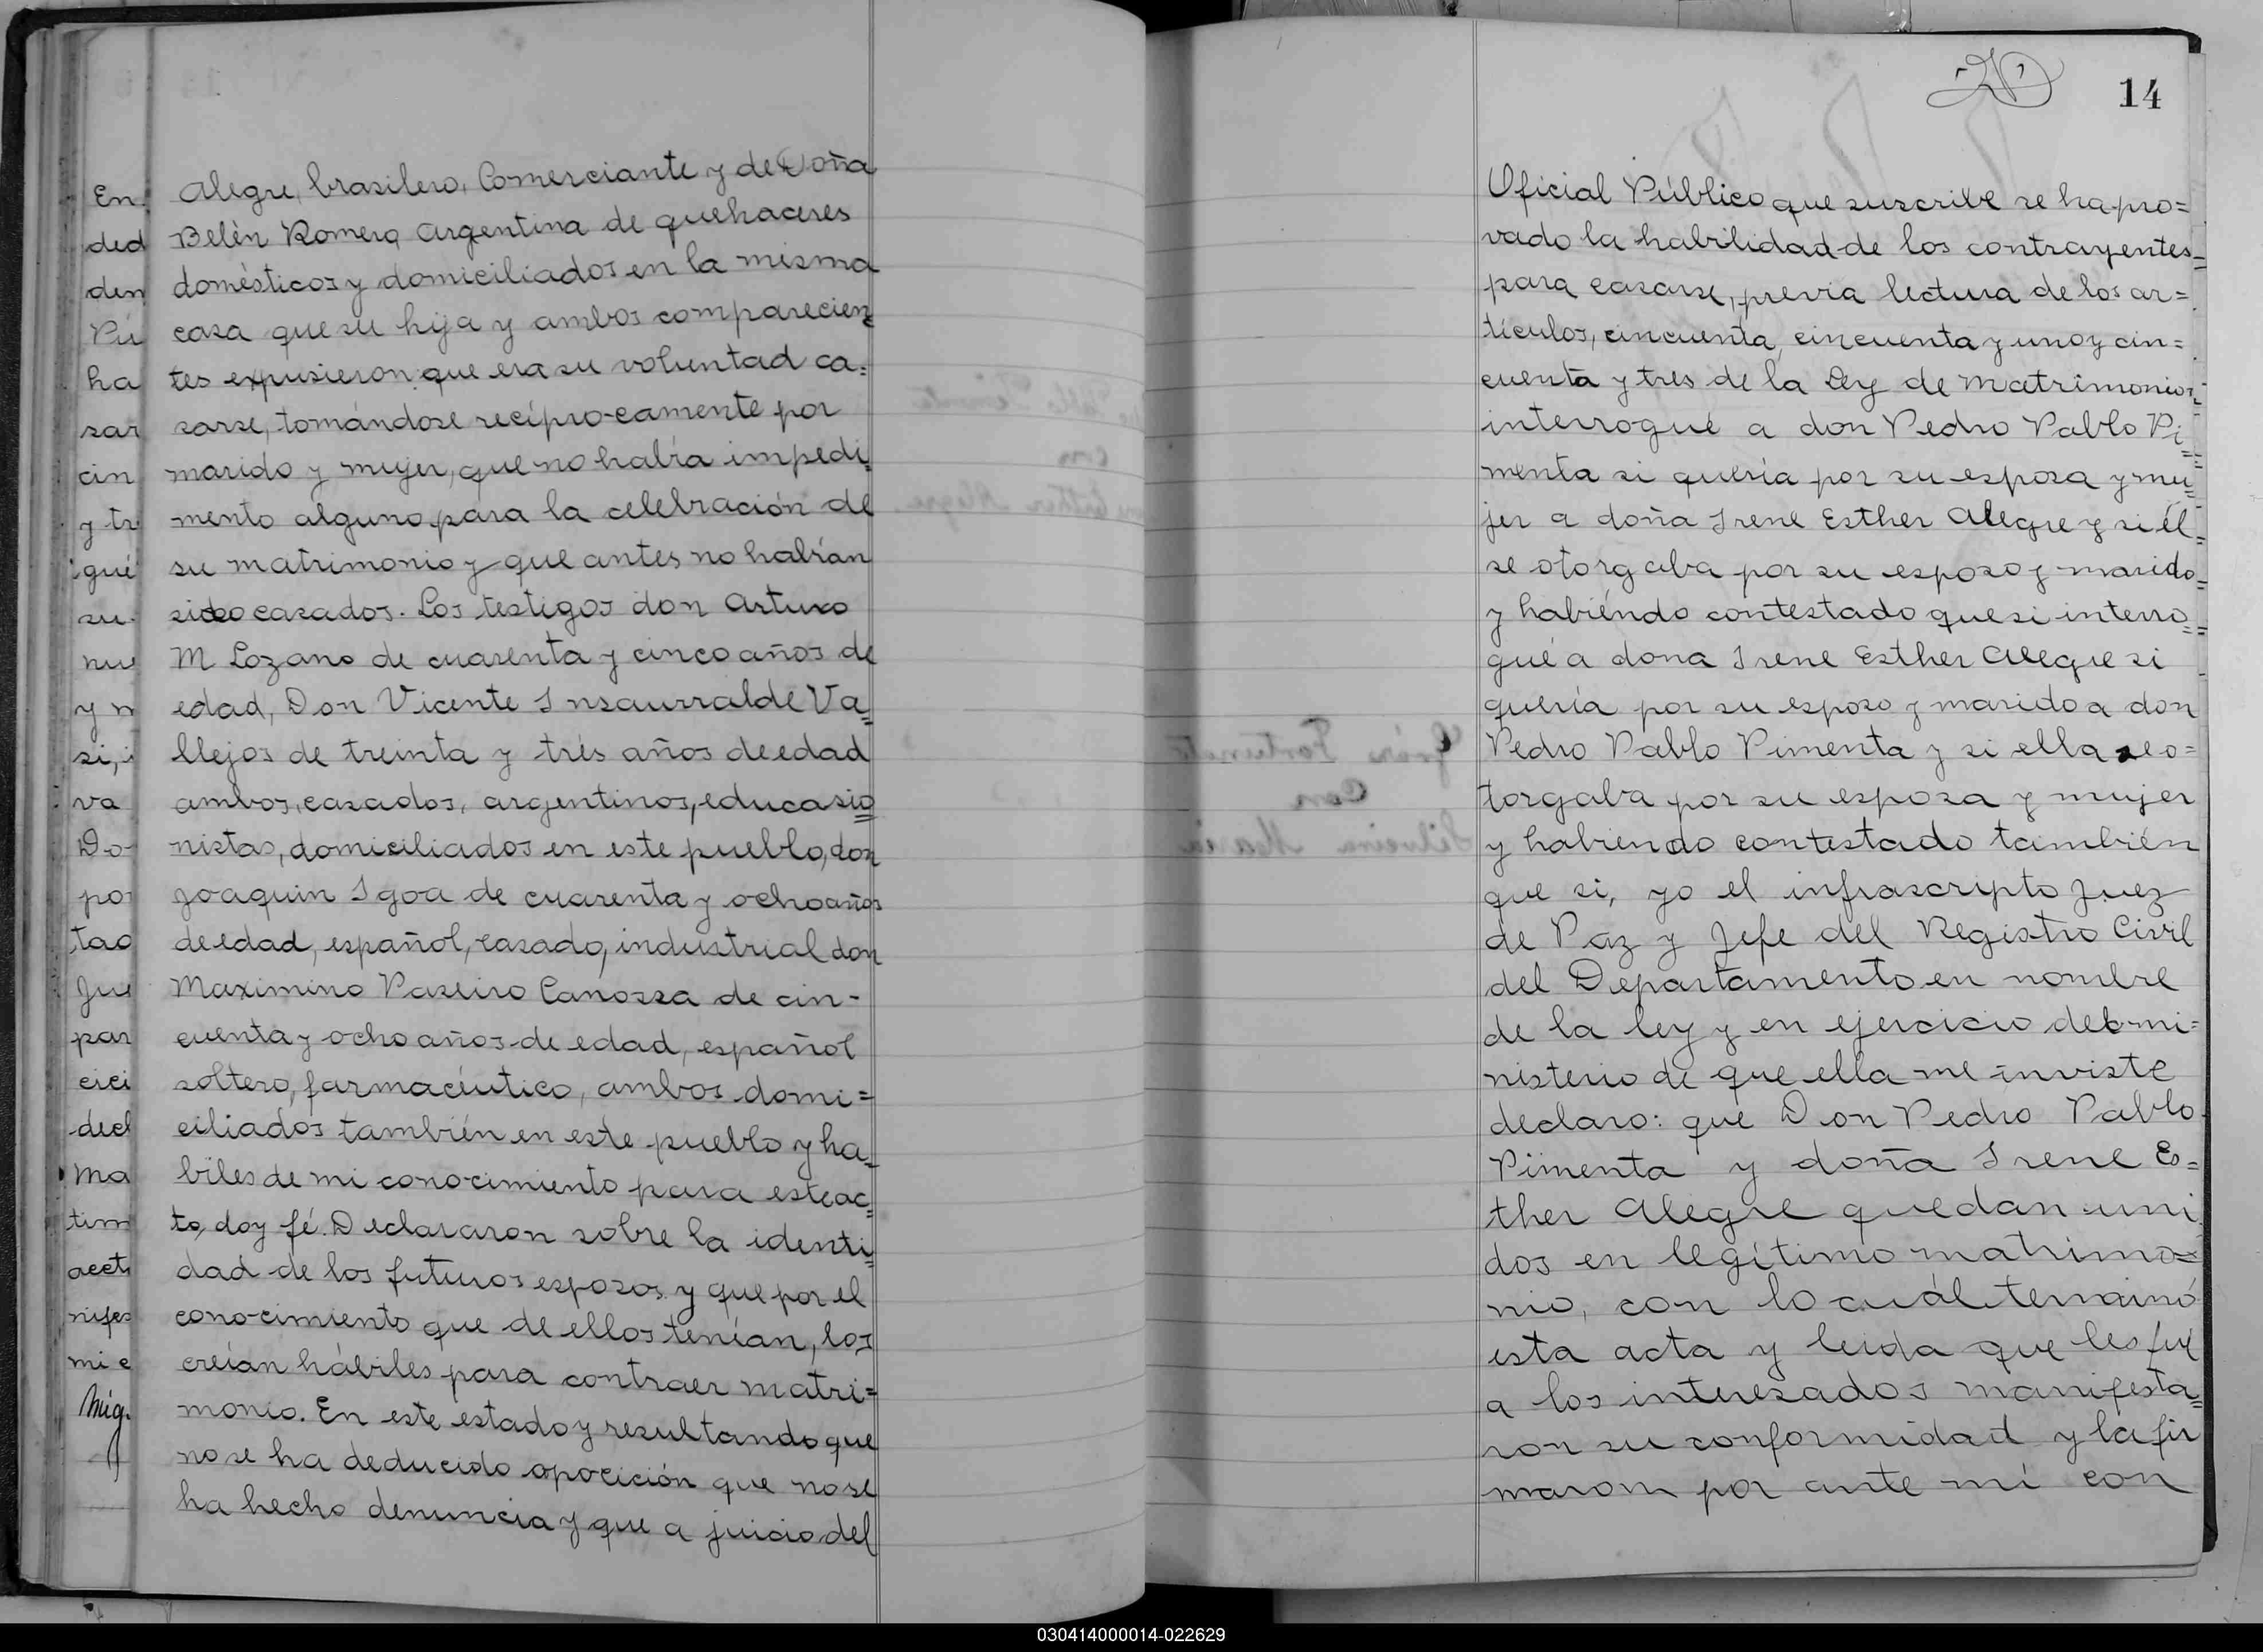 Alegre, brasilero, Comerciante y de Doña
Belén Romero, Argentina de quehaceres
domésticos y domiciliados en la misma
casa que su hija y ambos comparecien=
tes expusieron: que era su voluntad ca=
sarse, tomándose recíprocamente por
marido y mujer, que no había impedi=
mento alguno para la celebración de
su matrimonio y que antes no habían
sido casados. Los testigos don Arturo
M Lozano de cuarenta y cinco años de
edad, Don Vicente Insaurralde Va=
llejos de treinta y trés años de edad
ambos, casados, argentinos, educasio=
nistas, domiciliados en este pueblo, don
Joaquin Igoa de cuarenta y ocho años
de edad, español, casado, industrial don
Maximino Paseiro Canossa de cin-
cuenta y ocho años de edad, español
soltero, farmacéutico, ambos domi=
ciliados también en este pueblo y ha=
biles de mi conocimiento para este ac=
to, doy fé. Declararon sobre la identi=
dad de los futuros esposos y que por el
conocimiento que de ellos tenían, los
creían hábiles para contraer matri=
monio. En este estado y resultando que
no se ha deducido oposición que no se
ha hecho denuncia y que a juicio del
En
ded
den
Pú
ha
sar
cin
y tr
gué
su
nue
y m
si, i
va
Do
po
tad
Jue
par
cici
decl
Ma
tim
acta
nifes
mi c
Mig
14
Oficial Público que suscribe se ha pro=
vado la habilidad de los contrayentes=
para casarse, previa lectura de los ar=
tículos, cincuenta, cincuenta y uno y cin=
cuenta y tres de la Ley de Matrimonios,
interrogué a don Pedro Pablo Pi=
menta si quería por su esposa y mu=
jer a doña Irene Esther Alegre y si él=
se otorgaba por su esposo y marido=
y habiéndo contestado que si interro=
gué a dona Irene Esther Alegre si
quería por su esposo y marido a don
Pedro Pablo Pimenta y si ella se o=
torgaba por su esposa y mujer
y habiendo contestado también
que si, yo el infrascripto Juez
de Paz y Jefe del Registro Civil
del Departamento en nombre
de la ley y en ejercicio del mi=
nisterio de que ella me inviste
declaro: que Don Pedro Pablo
Pimenta y doña Irene Es=
ther Alegre quedan uni
dos en legítimo matrimo=
nio, con lo cuál terminó
esta acta y leida que les fué
a los interesados manifesta=
ron su conformidad y la fir
maron por ante mí con
030414000014-022629